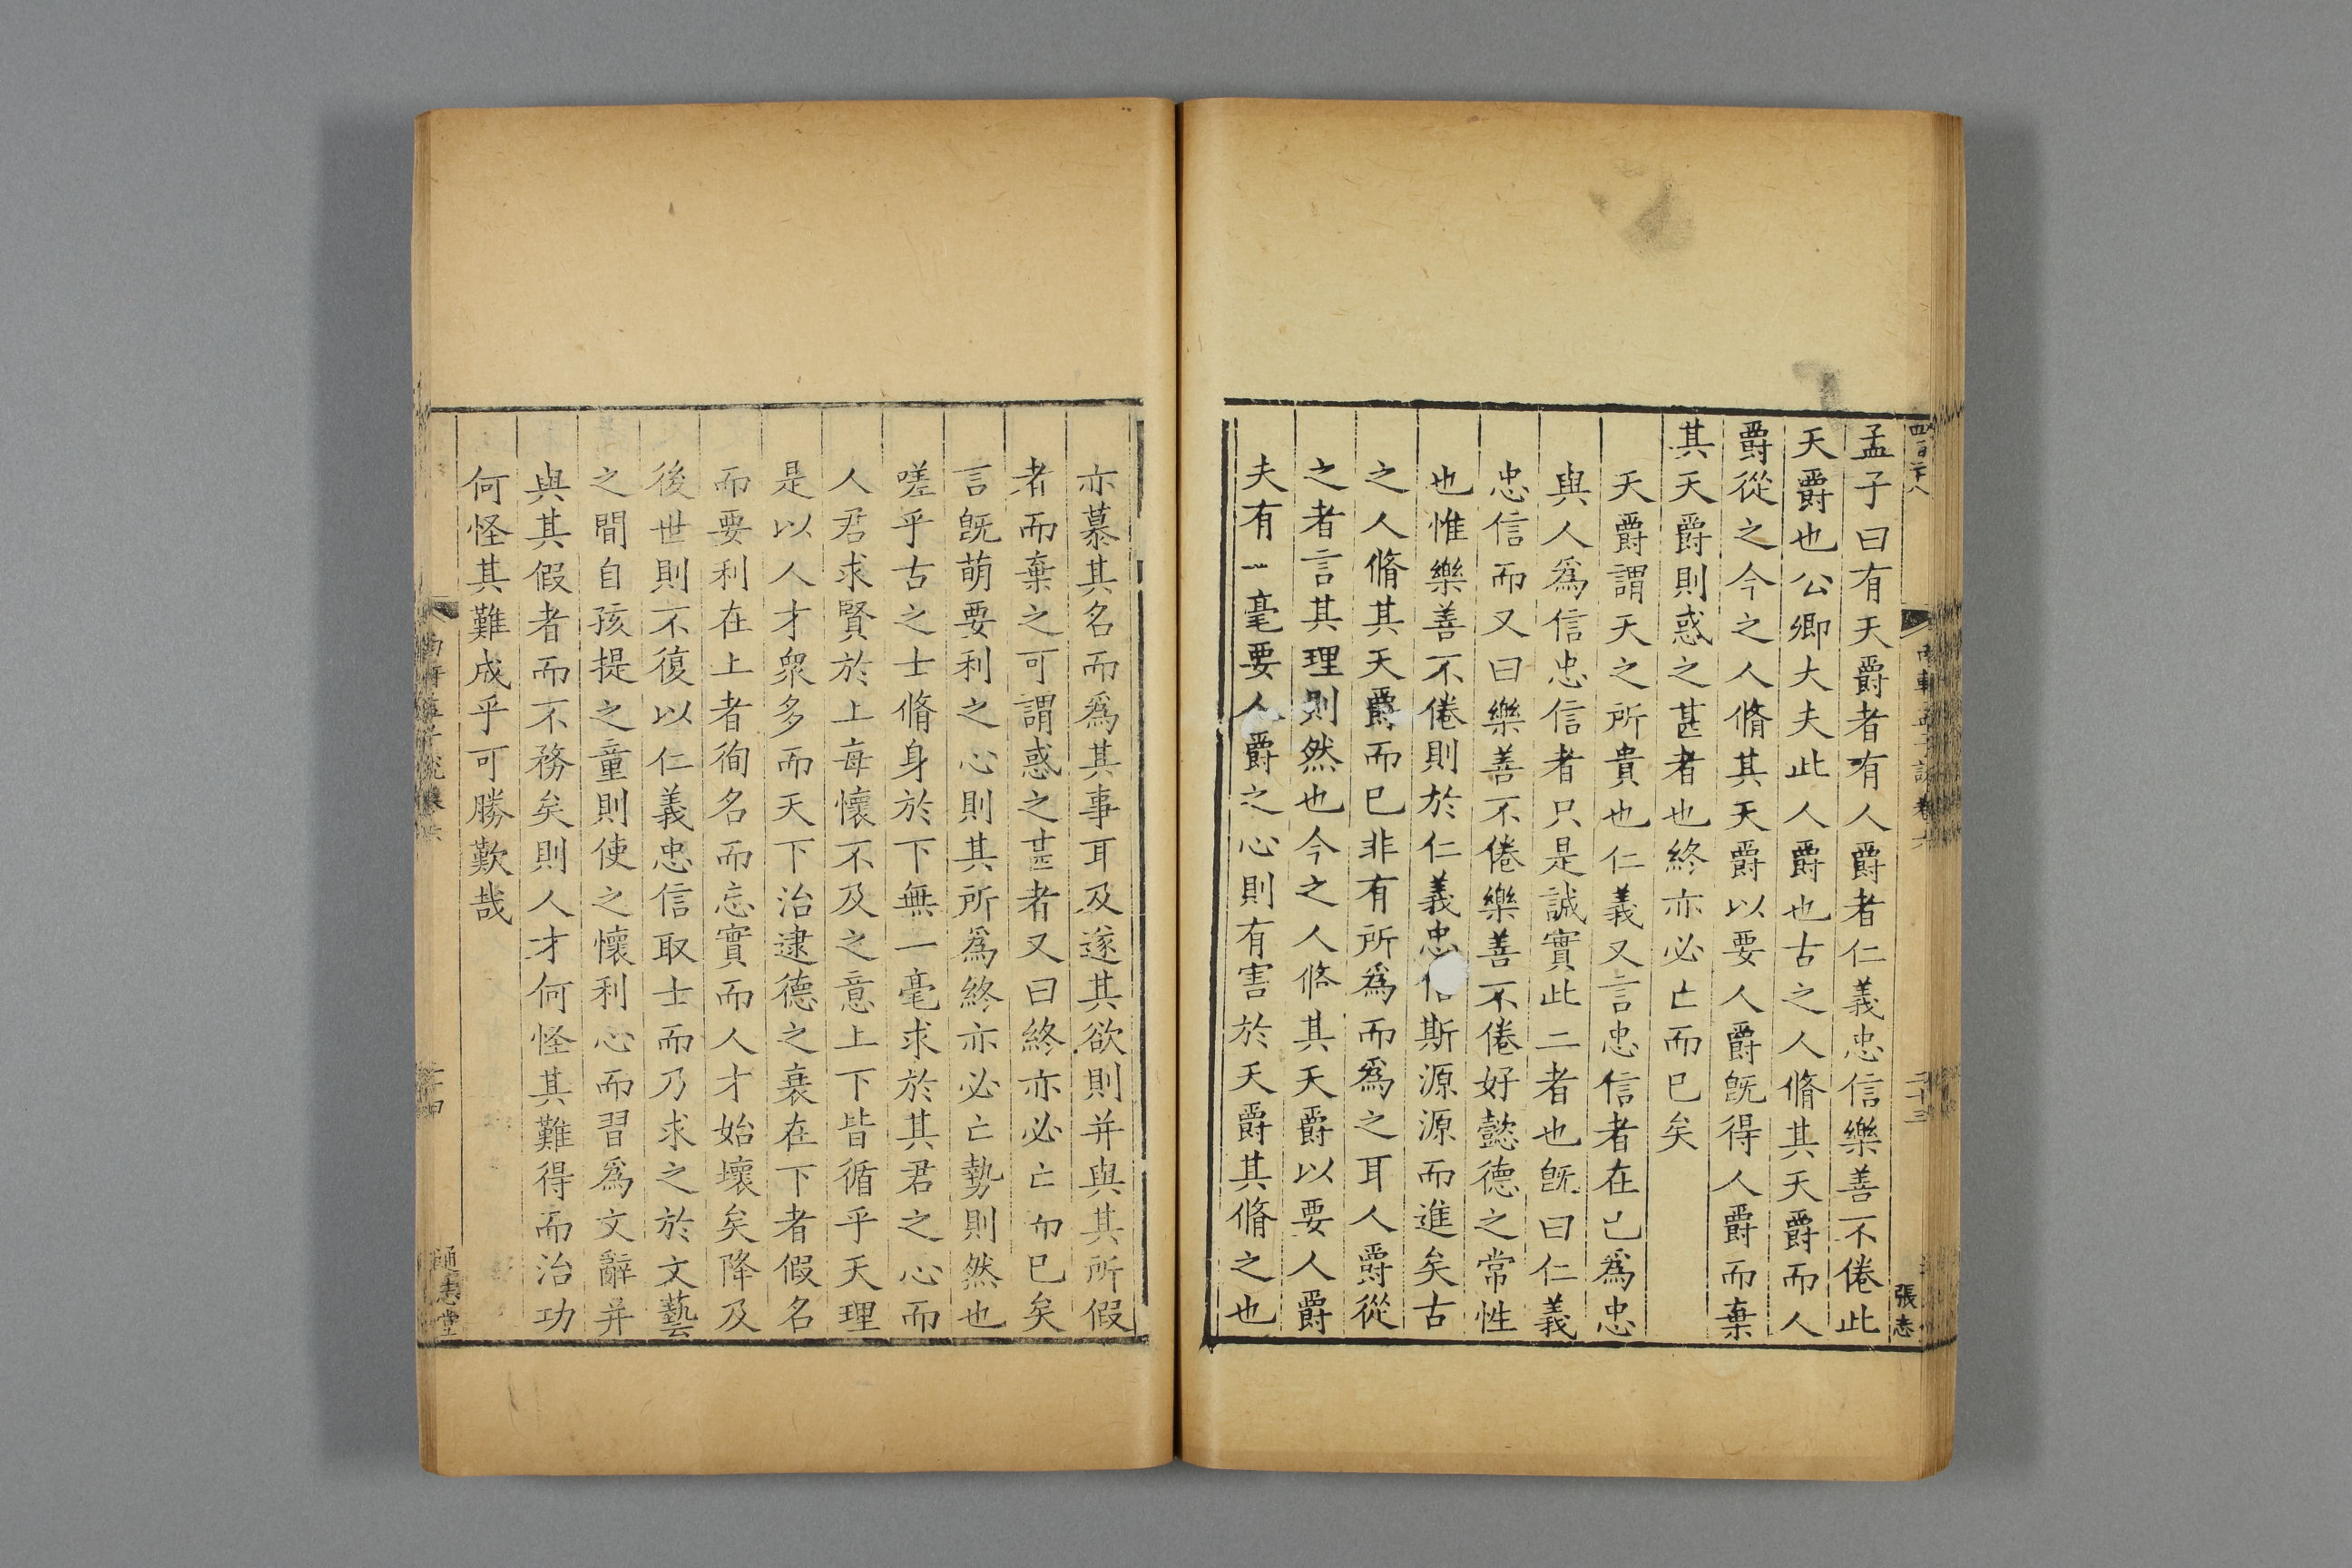 孟子曰有天爵者有人爵者仁義忠信樂善不倦此
天爵也公卿大夫此人爵也古之人脩其天爵而人
爵從之今之人脩其天爵以要人爵旣得人爵而棄
其天爵則惑之甚者也終亦必亡而已矣
天爵謂天之所貴也仁義又言忠信者在已爲忠
與人爲信忠信者只是誠實此二者也旣曰仁義
忠信而又曰樂善不倦樂善不倦好懿德之常性
也惟樂善不倦則於仁義忠信斯源源而進矣古
之人脩其天爵而已非有所爲而爲之耳人爵從
之者言其理則然也今之人脩其天爵以要人爵
夫有一毫要人爵之心則有害於天爵其脩之也
張志
亦慕其名而爲其事耳及遂其欲則并與其所假
者而棄之可謂惑之甚者又曰終亦必亡而已矣
言旣萌要利之心則其所爲終亦必亡勢則然也
嗟乎古之士脩身於下無一毫求於其君之心而
人君求賢於上每懷不及之意上下皆循乎天理
是以人才衆多而天下治逮德之衰在下者假名
而要利在上者徇名而忘實而人才始壞矣降及
後世則不復以仁義忠信取士而乃求之於文藝
之間自孩提之童則使之懷利心而習爲文辭并
與其假者而不務矣則人才何怪其難得而治功
何怪其難成乎可勝歎哉
通志堂